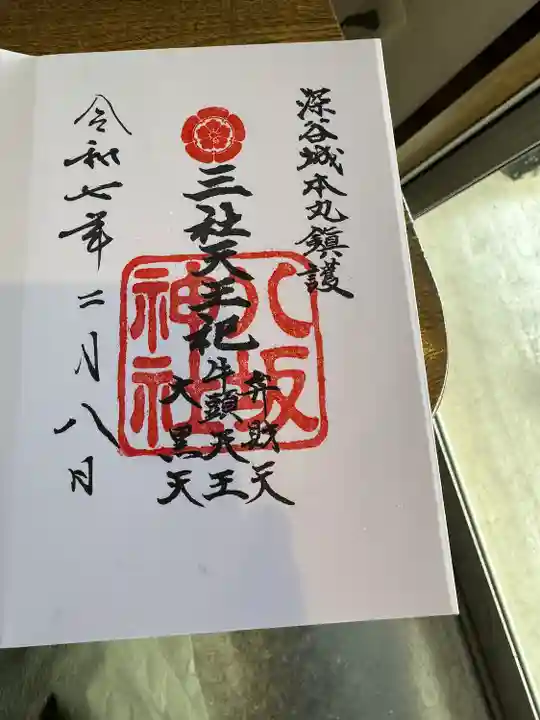 深谷城本丸鎮護
三社天王祀
弁財天
牛頭天王
大黒天
八坂
神社
令和七年二月八日